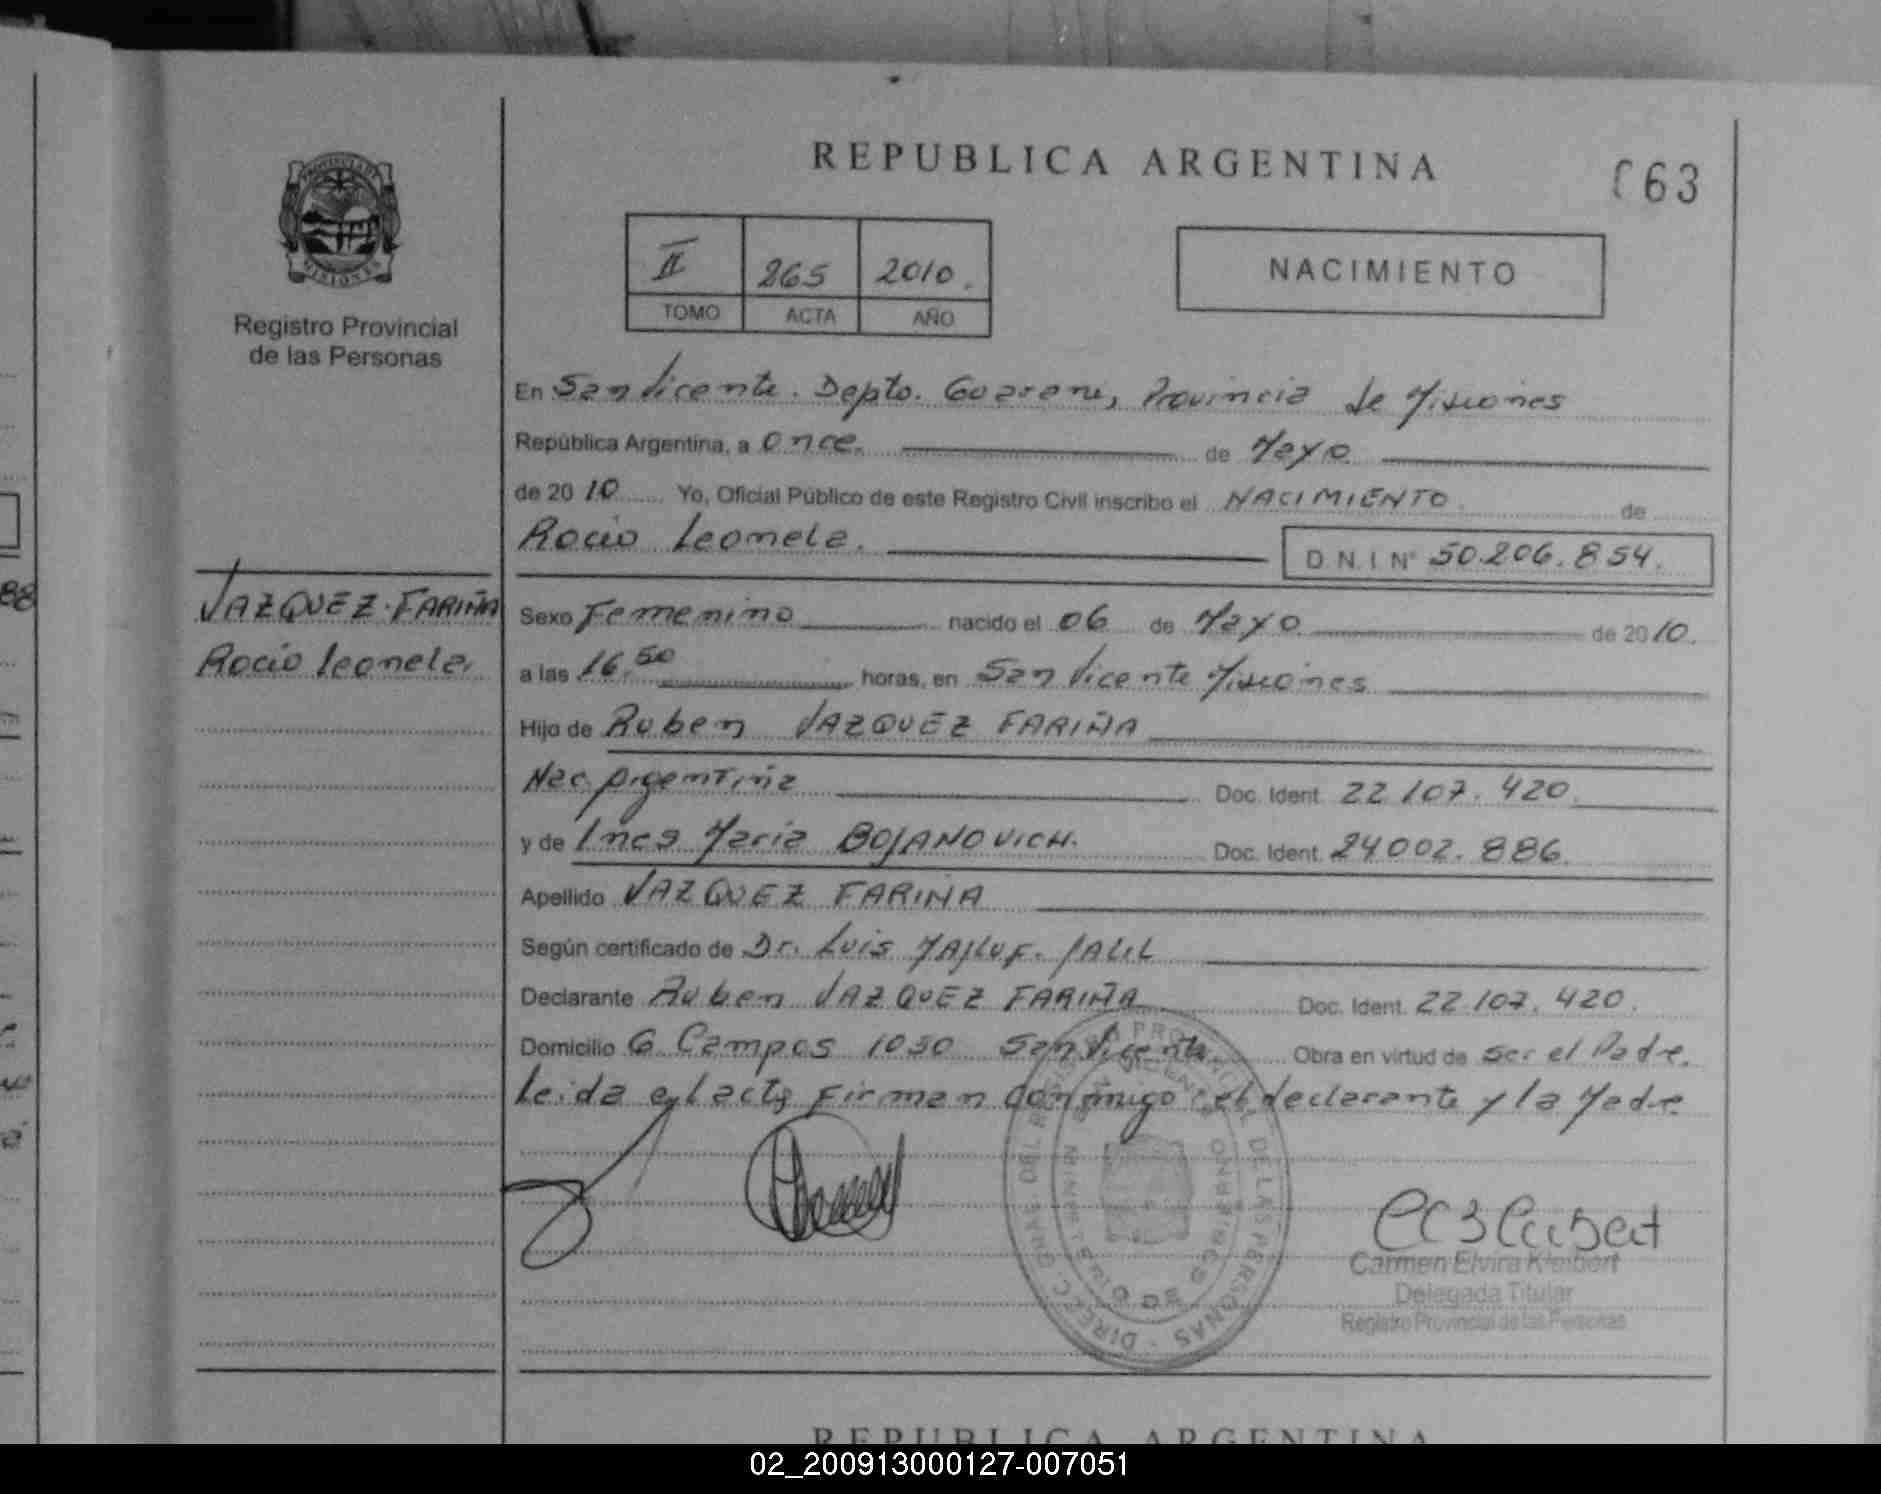 REPUBLICA ARGENTINA
63
PROVINCIA DE
MISIONES
Registro Provincial
de las Personas
II 265 2010.
TOMO ACTA AÑO
NACIMIENTO
En San Vicente. Depto. Guarani, Provincia de Misiones
República Argentina, a once. de Mayo
de 2010 Yo, Oficial Público de este Registro Civil inscribo el NACIMIENTO de
Rocio Leonela. D.N.I Nº 50.206.854.
88
VAZQUEZ FARIÑA
Rocio Leonela.
Sexo Femenino nacido el 06 de Mayo de 2010.
a las 16.50 horas, en San Vicente Misiones
Hijo de Ruben VAZQUEZ FARIÑA
Nac. Argentina Doc. Ident. 22.107.420.
y de Ines Maria BOJANOVICH. Doc. Ident. 24002.886.
Apellido VAZQUEZ FARIÑA
Según certificado de Dr. Luis
Declarante Ruben VAZQUEZ FARIÑA Doc. Ident. 22.107.420.
Domicilio G Campos 1030 San Vicente. Obra en virtud de ser el Padre.
Leida el acta firman conmigo el declarante y la Madre
DIREC. GRAL. DEL REGISTRO PROVINCIAL DE LAS PERSONAS
Carmen Elvira Kleibert
Delegada Titular
Registro Provincial de las Personas
REPUBLICA ARGENTINA
02_200913000127-007051